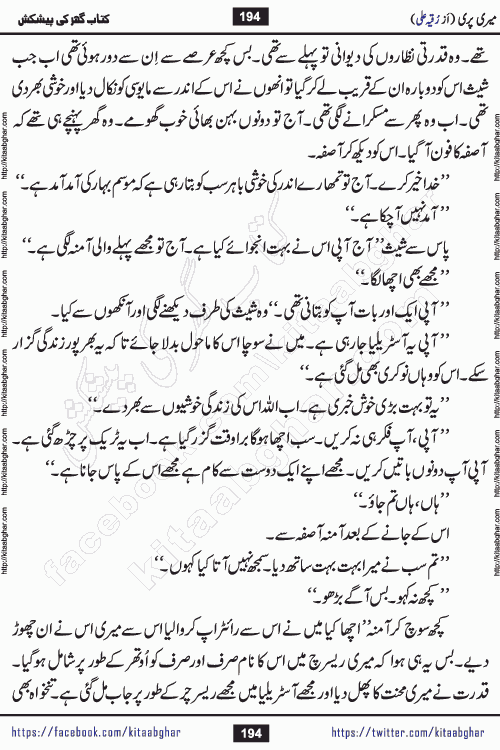 میری پری (از رُقیہ علی)
194
کتاب گھر کی پیشکش
تھے۔ وہ قدرتی نظاروں کی دیوانی تو پہلے سے تھی۔ بس کچھ عرصے سے اِن سے دور ہوئی تھی اب جب
شیث اس کو دوبارہ ان کے قریب لے کر گیا تو انھوں نے اس کے اندر سے مایوسی کو نکال دیا اور خوشی بھر دی
تھی۔ اب وہ پھر سے مسکرانے لگی تھی۔ آج تو دونوں بہن بھائی خوب گھومے۔ وہ گھر پہنچے ہی تھے کہ
آصفہ کا فون آ گیا۔ اس کو دیکھ کر آصفہ۔
’’خدا خیر کرے۔ آج تو تمھارے اندر کی خوشی باہر سب کو بتا رہی ہے کہ موسم بہار کی آمد آمد ہے۔‘‘
’’آمد نہیں آ چکا ہے۔‘‘
پاس سے شیث ’’آج آپی اس نے بہت انجوائے کیا ہے۔ آج تو مجھے پہلے والی آمنہ لگی ہے۔‘‘
’’مجھے بھی اچھا لگا۔‘‘
’’آپی ایک اور بات آپ کو بتانی تھی۔‘‘ وہ شیث کی طرف دیکھنے لگی اور آنکھوں سے کیا۔
’’آپی یہ آسٹریلیا جا رہی ہے۔ میں نے سوچا اس کا ماحول بدلا جائے تا کہ یہ بھر پور زندگی گزار
سکے۔ اس کو وہاں نوکری بھی مل گئی ہے۔‘‘
’’یہ تو بہت بڑی خوش خبری ہے۔ اب اللہ اس کی زندگی خوشیوں سے بھر دے۔‘‘
’’آپی، آپ فکر ہی نہ کریں۔ سب اچھا ہو گا برا وقت گزر گیا ہے۔ اب یہ ٹریک پر چڑھ گئی ہے۔
آپی آپ دونوں باتیں کریں۔ مجھے اپنے ایک دوست سے کام ہے مجھے اس کے پاس جانا ہے۔‘‘
’’ہاں، ہاں تم جاؤ۔‘‘
اس کے جانے کے بعد آمنہ آصفہ سے۔
’’تم سب نے میرا بہت بہت ساتھ دیا۔ سمجھ نہیں آتا کیا کہوں۔‘‘
’’کچھ نہ کہو۔ بس آگے بڑھو۔‘‘
کچھ سوچ کر آمنہ ’’اچھا کیا میں نے اس سے رائٹ اپ کروا لیا اس سے میری اس نے ان چھوڑ
دیے۔ بس یہ ہی ہوا کہ میری ریسرچ میں اس کا نام صرف اور صرف کو اُوتھر کے طور پر شامل ہو گیا۔
قدرت نے میری محنت کا پھل دیا اور مجھے آسٹریلیا میں مجھے ریسرچر کے طور پر جاب مل گئی ہے۔ تنخواہ بھی
http://kitaabghar.com
kitaabghar.com
facebook.com/kitaabghar
https://facebook.com/kitaabghar
194
https://twitter.com/kitaabghar